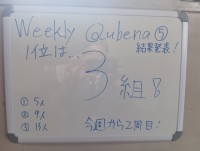 Weekly Qubena ⑤
結果発表!
1位は...
3組!
① 5人
② 9人
③ 13人
今回から2周目!